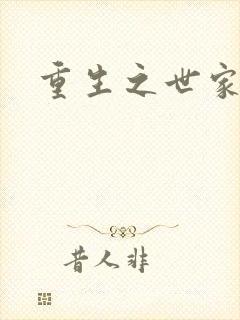 重生之世家
昔人非